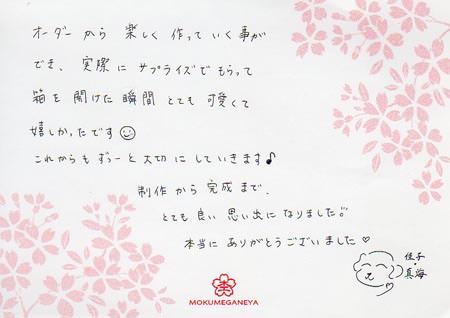 オーダーから 楽しく 作って いく 事が
でき、実際に サプライズで もらって
箱を 開けた 瞬間 とても 可愛くて
嬉しかったです☺
これからも ずぅーと 大切に していきます♪
制作から 完成まで、
とても 良い 思い出に なりました!!
本当に ありがとうございました♡
佳子
・
真海
MOKUMEGANEYA